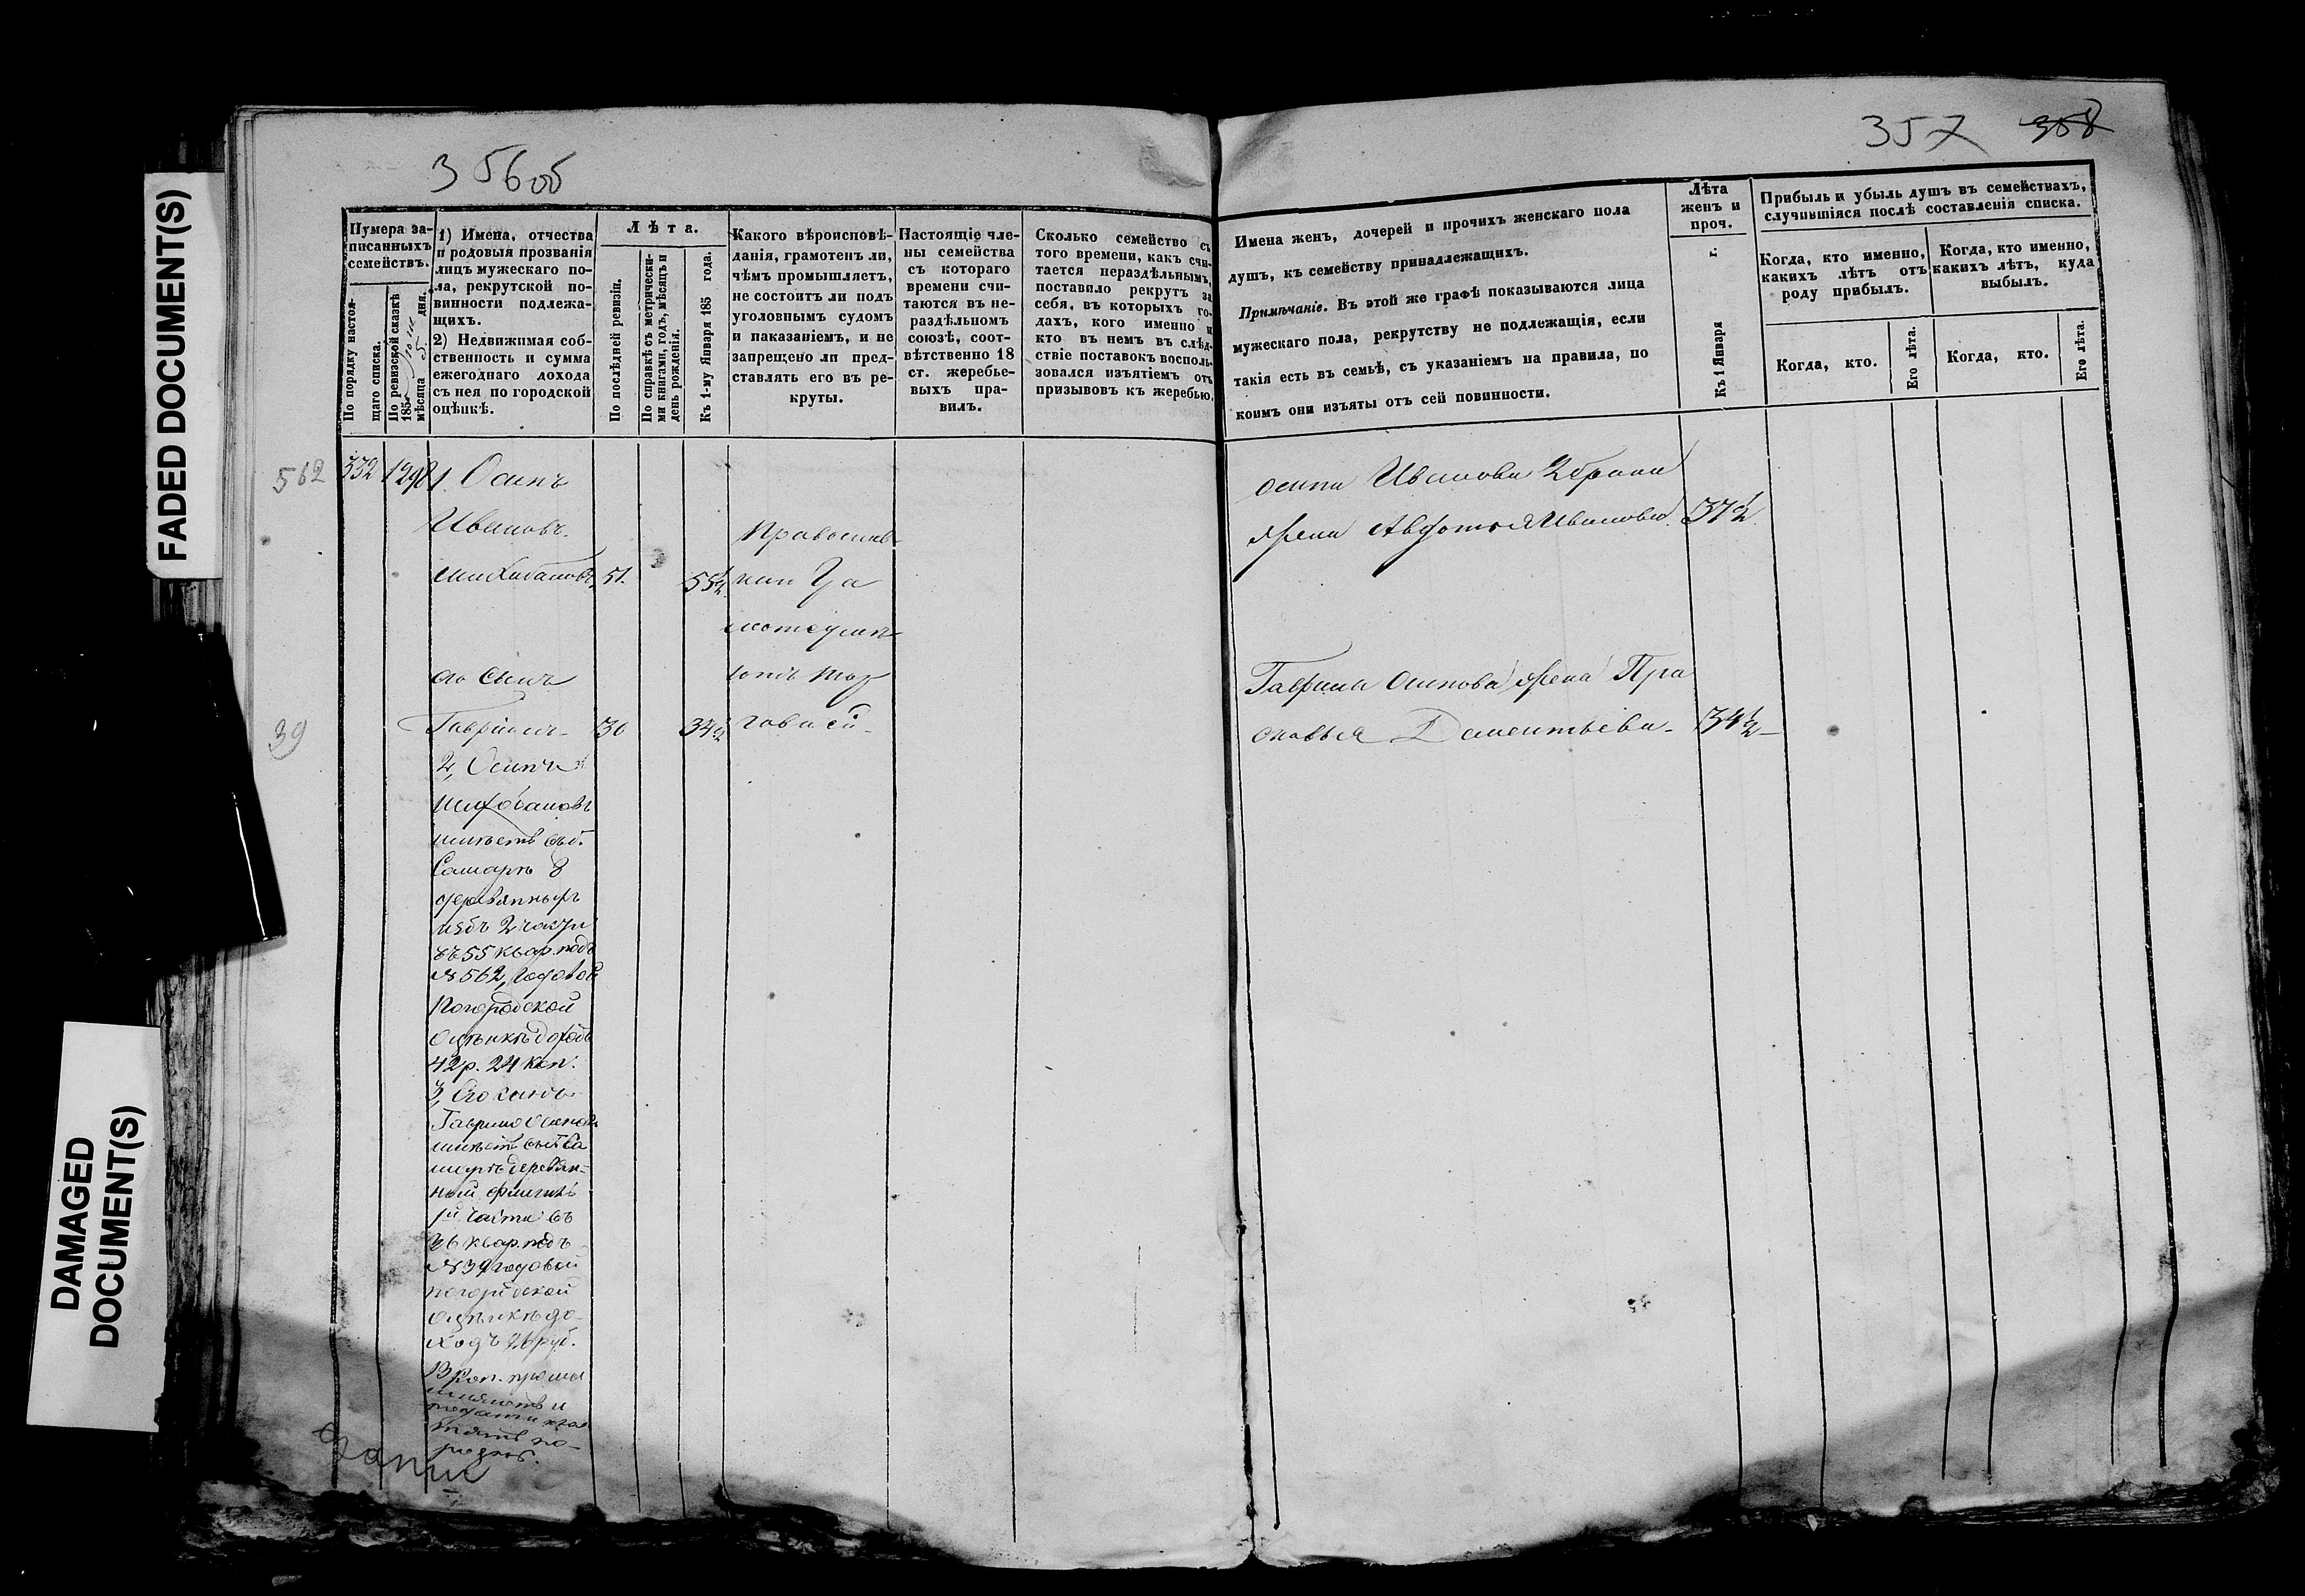 FADED DOCUMENT(S)
DAMAGED
DOCUMENT(S)
356об
Нумера за-
писанныхъ
семействъ.
По порядку настоя-
щаго списка.
По ревизской сказкѣ
185
мѣсяца 5 дня.
1) Имена, отчества
и родовыя прозванія
лицъ мужескаго по-
ла, рекрутской по-
винности подлежа-
щихъ.
2) Недвижимая соб-
ственность и сумма
ежегоднаго дохода
съ нея по городской
оцѣнкѣ.
Лѣта.
По послѣдней ревизіи.
По справкѣ съ метрически-
ми книгами, годъ, мѣсяцъ и
день рожденія.
Къ 1-му Января 185 года.
Какого вѣроисповѣ-
данія, грамотенъ ли,
чѣмъ промышляетъ,
не состоитъ ли подъ
уголовнымъ судомъ
и наказаніемъ, и не
запрещено ли пред-
ставлять его въ ре-
круты.
Настоящіе чле-
ны семейства
съ котораго
времени счи-
таются въ не-
раздѣльномъ
союзѣ, соот-
вѣтственно 18
ст. жеребье-
выхъ пра-
вилъ.
Сколько семейство съ
того времени, какъ счи-
тается нераздѣльнымъ,
поставило рекрутъ за
себя, въ которыхъ го-
дахъ, кого именно и
кто въ немъ въ слѣд-
ствіе поставокъ восполь-
зовался изъятіемъ отъ
призывовъ къ жеребью.
562
332 1298 1. Осипъ
Ивановъ
51. 55½
Православ-
его сынъ
39
Гаврилъ- 30 34½
2, Осипъ
имѣетъ въ г.
Самарѣ
деревянный
2 части
въ 55 квар. подъ
№ 562, годовой
по городской
оцѣнкѣ доходъ
42 р. 24 коп.
3, Его сынъ
Гаврило Осипов
имѣетъ въ г. Са
марѣ деревян-
ный флигель
части въ
26 квар. подъ
№ 39 годовой
по городской
оцѣнкѣ до-
ходъ 26 руб.
13 коп.
357 358
Имена женъ, дочерей и прочихъ женскаго пола
душъ, къ семейству принадлежащихъ.
Примѣчаніе. Въ этой же графѣ показываются лица
мужескаго пола, рекрутству не подлежащія, если
такія есть въ семьѣ, съ указаніемъ на правила, по
коимъ они изъяты отъ сей повинности.
Лѣта
женъ и
проч.
Къ 1 Января г.
Прибыль и убыль душъ въ семействахъ,
случившіяся послѣ составленія списка.
Когда, кто именно,
какихъ лѣтъ отъ
роду прибылъ.
Когда, кто именно,
какихъ лѣтъ, куда
выбылъ.
Когда, кто.
Его лѣта.
Когда, кто.
Его лѣта.
Осипа Иванова 2 брака
жена Авдотья Иванова. 37½.
Гаврилы Осипова жена Пра
сковья Дементьева. 34½